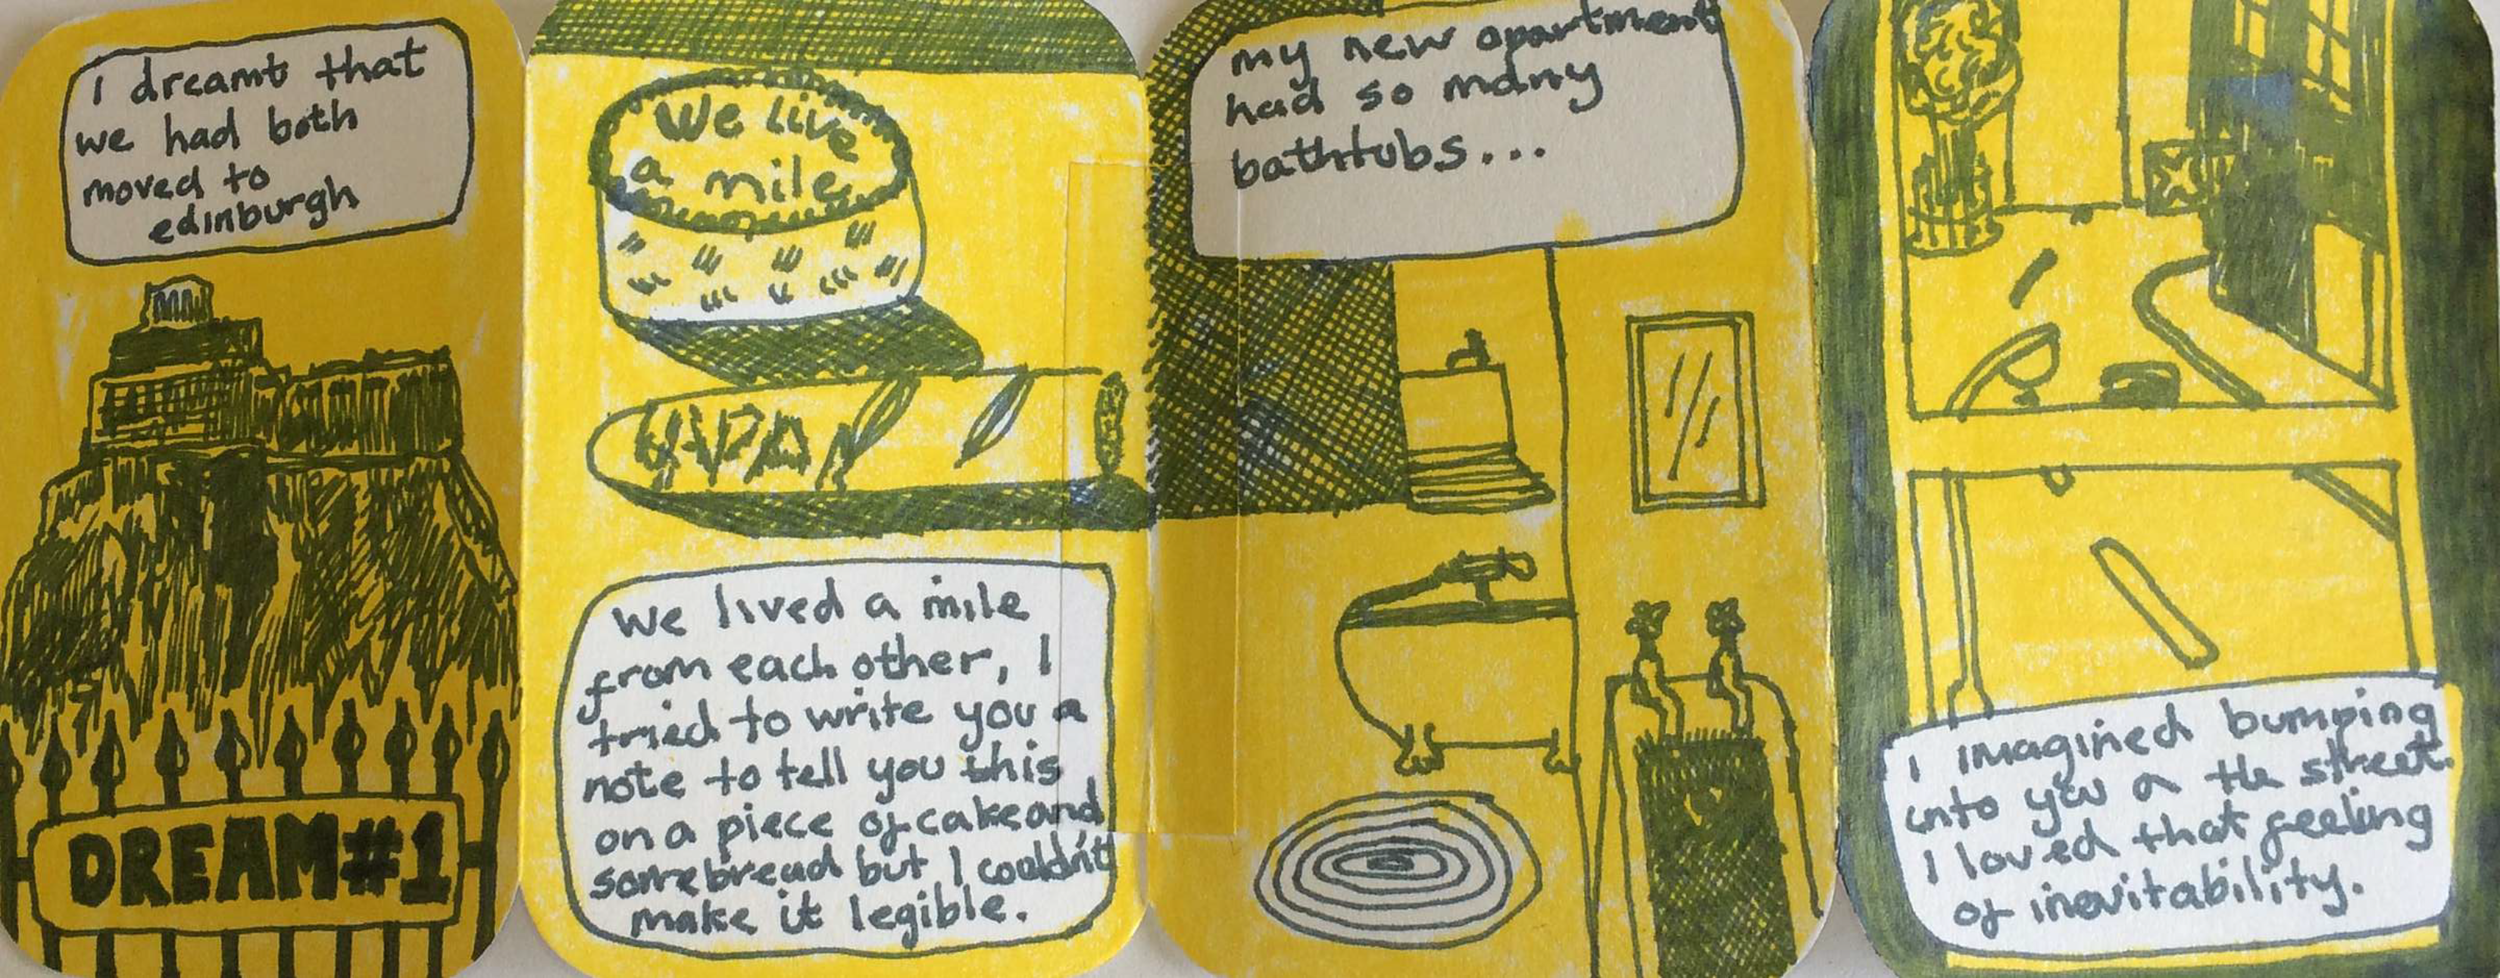 I dreamt that
we had both
moved to
edinburgh
DREAM#1
We live
a mile
We lived a mile
from each other, I
tried to write you a
note to tell you this
on a piece of cake and
some bread but I couldn't
make it legible.
my new apartment
had so many
bathtubs...
I imagined bumping
into you on the street.
I loved that feeling
of inevitability.